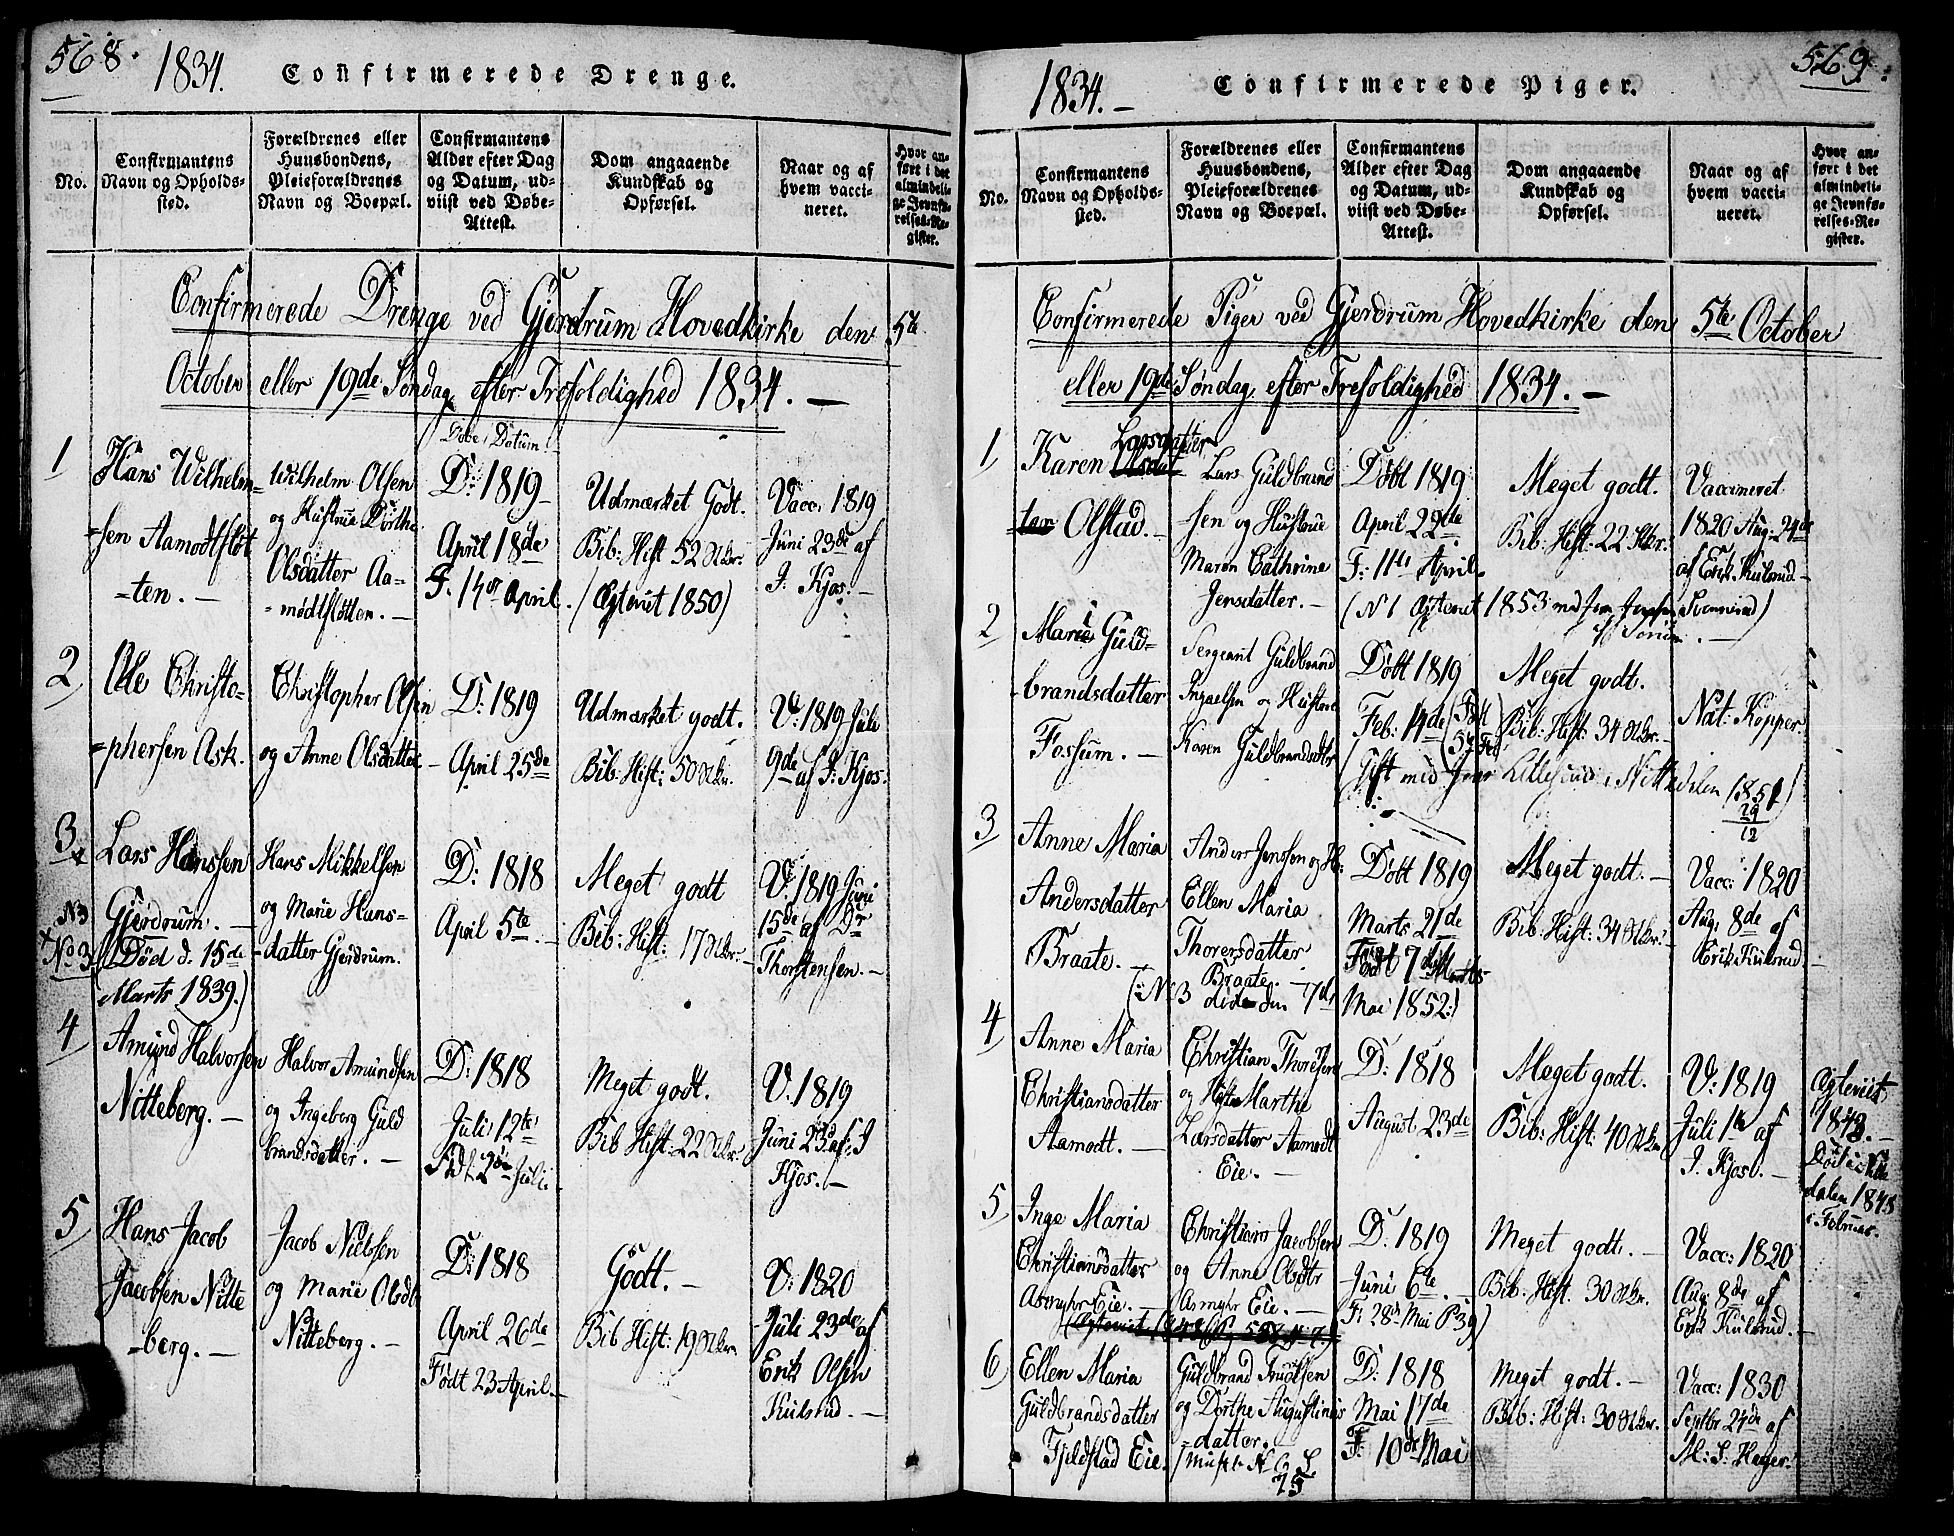 568.
1834.
Confirmerede Drenge.
No.
Confirmantens
Navn og Opholds-
sted.
Forældrenes eller
Huusbondens,
Pleieforældrenes
Navn og Boepæl.
Confirmantens
Alder efter Dag
og Datum, ud-
viist ved Døbe-
Attest.
Dom angaaende
Kundskab og
Opførsel.
Naar og af
hvem vacci-
neret.
Hvor an-
ført i det
almindeli-
ge Jevnfø-
relses-Re-
gister.
Confirmerede Drenge ved Gjerdrum Hovedkirke den 5te
October eller 19de Søndag efter Trefoldighed 1834. —
1
Hans Wilhelm-
-sen Aamodtsløt
-ten. —
Wilhelm Olsen
og Hustrue Dorthe
Olsdatter Aa-
-modtsløtten. —
Døbe Datum
D: 1819
April 18de
F. 14de April.
Udmærket Godt.
Bib: Hist 52 Stkr.
(Ægteviet 1850)
Vacc: 1819
Juni 23de af
J. Kjos. —
2
Ole Christo-
-phersen Ask.
Christopher Olsen
og Anne Olsdatter
D: 1819
April 25de
Udmærket godt.
Bib: Hist: 50 Stkr.
V: 1819 Juli
9de af J: Kjos.
3
Lars Hanssen
Gjerdrum. —
No 3
(Død d. 15de
Marts 1839.)
Hans Mikkelsen
og Marie Hans-
-datter Gjerdrum.
D: 1818
April 5te. —
Meget godt
Bib: Hist: 17 Stkr.
V: 1819 Juni
15de af Dr
Thorstensen. —
4
Amund Halvorsen
Nitteberg. —
Halvor Amundsen
og Ingeborg Guld
brandsdatter. —
D: 1818
Juli 12te
Født 2den Juli.
Meget godt.
Bib Hist: 22 Stkr.
V. 1819
Juni 23 af J
Kjos. —
5
Hans Jacob
Jacobsen Nitte
-berg. —
Jacob Nielssen
og Marie Olsdtr
Nitteberg. —
D: 1818
April 26de
Født 23 April. —
Godt. —
Bib Hist: 19 Stkr.
V: 1820
Juli 23de af
Erik Olsen
Kulsrud. —
569.
1834. —
Confirmerede Piger.
No.
Confirmantens
Navn og Opholds-
sted.
Forældrenes eller
Huusbondens,
Pleieforældrenes
Navn og Boepæl.
Confirmantens
Alder efter Dag
og Datum, ud-
viist ved Døbe-
Attest.
Dom angaaende
Kundskab og
Opførsel.
Naar og af
hvem vacci-
neret.
Hvor an-
ført i det
almindeli-
ge Jevnfø-
relses-Re-
gister.
Confirmerede Piger ved Gjerdrum Hovedkirke den 5te October
eller 19de Søndag efter Trefoldighed 1834. —
1
Larsdatter
Karen Olsdat
ter Olstad. —
Lars Guldbrand
-sen og Hustrue
Maren Cathrine
Jensdatter. —
Døbt 1819
April 22de
F: 11te April
Meget godt.
Bib: Hist: 22 Stkr.
Vaccineret
1820 Aug: 24de
af Erik Kulsrud. —
(N 1 Ægteviet 1853 med
2
Marie Guld-
-brandsdatter
Fossum. —
Sergeant Guldbrand
Ingaelsen og Hustrue
Karen Guldbrandsdtr
Døbt 1819
Feb: 14de
Meget godt.
Bib: Hist: 34 Stkr. —
Nat: Kopper
(Gift med Nittedalen 1851)
29
12
3
Anne Maria
Andersdatter
Braate. —
Anders Jenssen og H:
Ellen Maria
Thorersdatter
Braate. —
Døbt 1819
Marts 21de
Født 7de Marts
Meget godt. —
Bib: Hist: 34 Stkr.
Vacc: 1820
Aug: 8de af
Erik Kulsrud. —
(: N: 3 død den 7de Mai 1852:)
4
Anne Maria
Christiansdatter
Aamodt. —
Christian Thoresen
og Marthe
Larsdatter Aamodt
Eie. —
D: 1818
August 23de
Meget godt.
Bib: Hist: 40 Stkr.
V: 1819
Juli 1te af
J. Kjos. —
Ægteviet
1843. —
Død i Nitte
dalen 1845
i Februar.
5
Inge Maria
Christiansdatter
Asmyhr Eie. —
Christian Jacobsen
og Anne Olsdtr
Asmyhr Eie. —
D: 1819
Juni 6te.
F: 28de Mai
Meget godt. —
Bib: Hist: 30 Stkr.
Vacc: 1820
Aug: 8de af
Erik Kulsrud. —
6
Ellen Maria
Guldbrandsdatter
Fjeldstad Eie.
Guldbrand Knudsen
og Dorthe Augustinus
-datter. —
D: 1818
Mai 17de
F: 10de Mai
Meget godt. —
Bib: Hist: 30 Stkr.
Vacc: 1830
Septbr 24de af
M: S: Heyer.